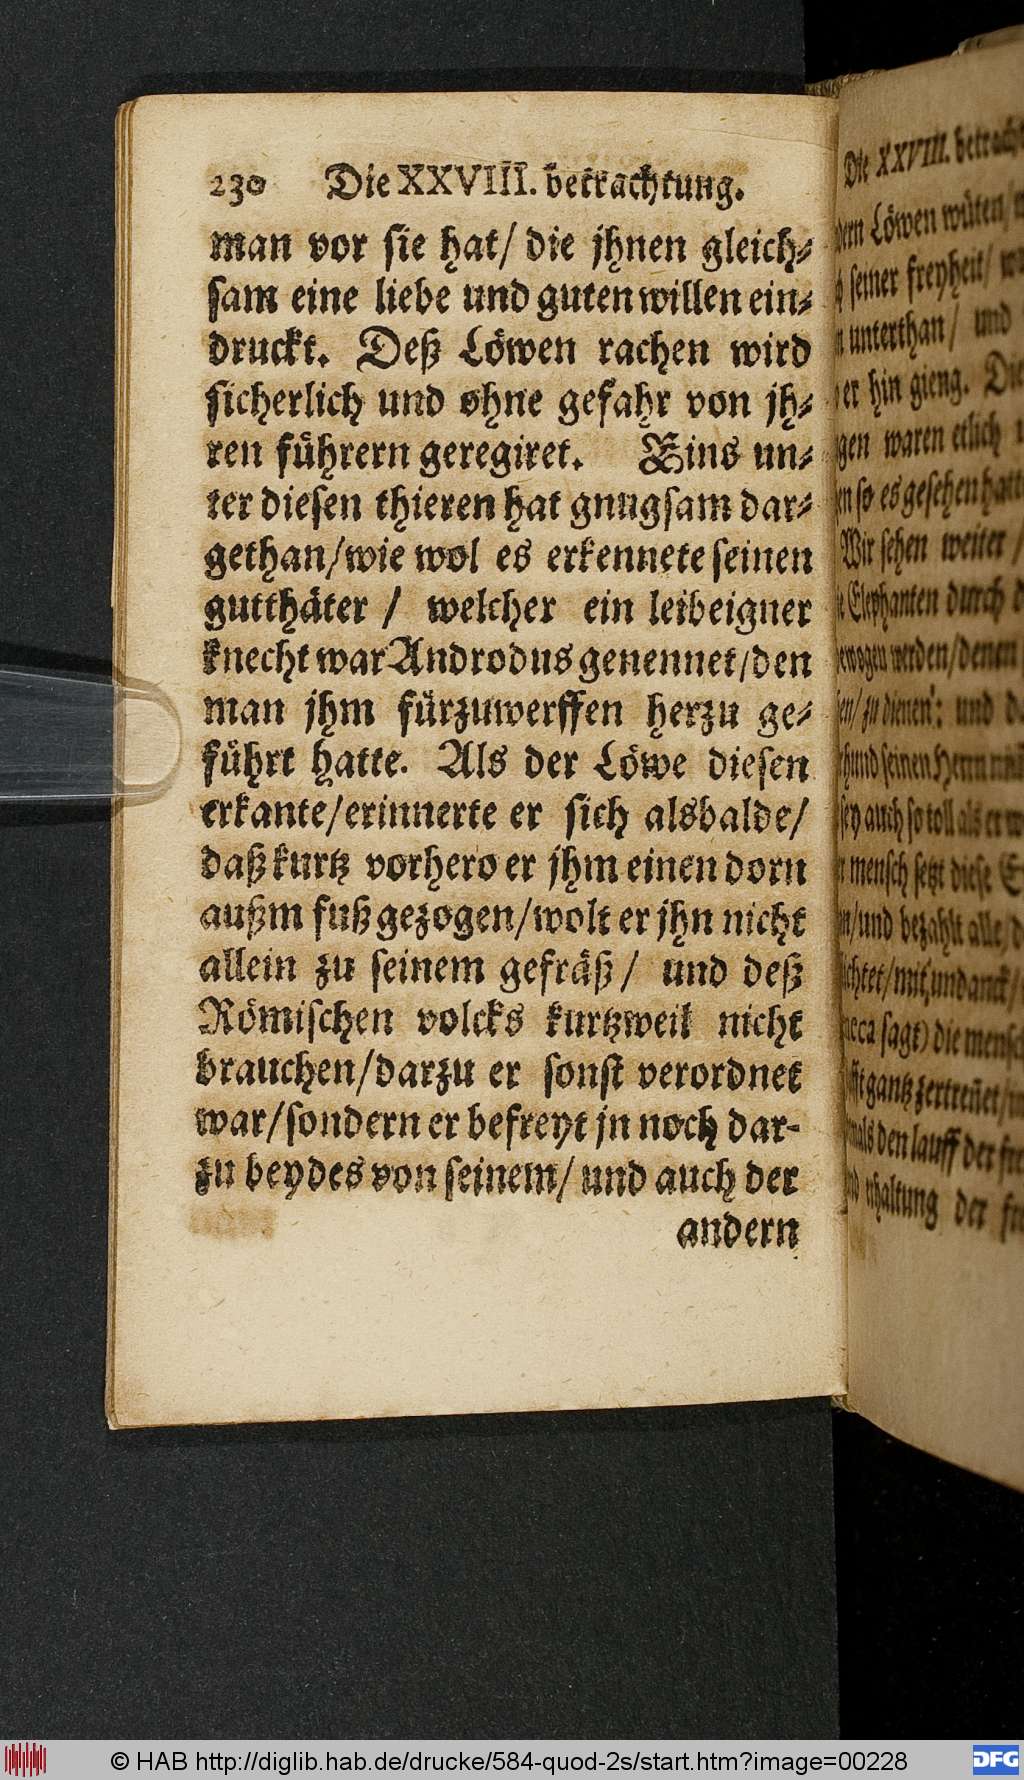 230 Die XXVIII. betrachtung.
man vor sie hat/ die jhnen gleich⸗
sam eine liebe und guten willen ein⸗
druckt. Deß Löwen rachen wird
sicherlich und ohne gefahr von jh⸗
ren führern geregiret. Eins un⸗
ter diesen thieren hat gnugsam dar⸗
gethan/wie wol es erkennete seinen
gutthäter / welcher ein leibeigner
knecht war Androdus genennet/den
man jhm fürzuwerffen herzu ge⸗
führt hatte. Als der Löwe diesen
erkante/erinnerte er sich alsbalde/
daß kurtz vorhero er jhm einen dorn
außm fuß gezogen/wolt er jhn nicht
allein zu seinem gefräß/ und deß
Römischen volcks kurtzweil nicht
brauchen/darzu er sonst verordnet
war/sondern er befreyt jn noch dar-
zu beydes von seinem/ und auch der
andern
Die XXVIII.
Löwen wüten
seiner freyheit/
unterthan/ und
er hin gieng. Die
waren etlich
so es gesehen
Wir sehen weiter/
Elephanten durch
werden/denen
zu dienen: und
seinen Herrn
auch so toll als er
mensch setzt diese
und bezahlt alle
mit undanck/
sagt) die
gantz zertreñet/
den lauff der
der
© HAB http://diglib.hab.de/drucke/584-quod-2s/start.htm?image=00228
DFG